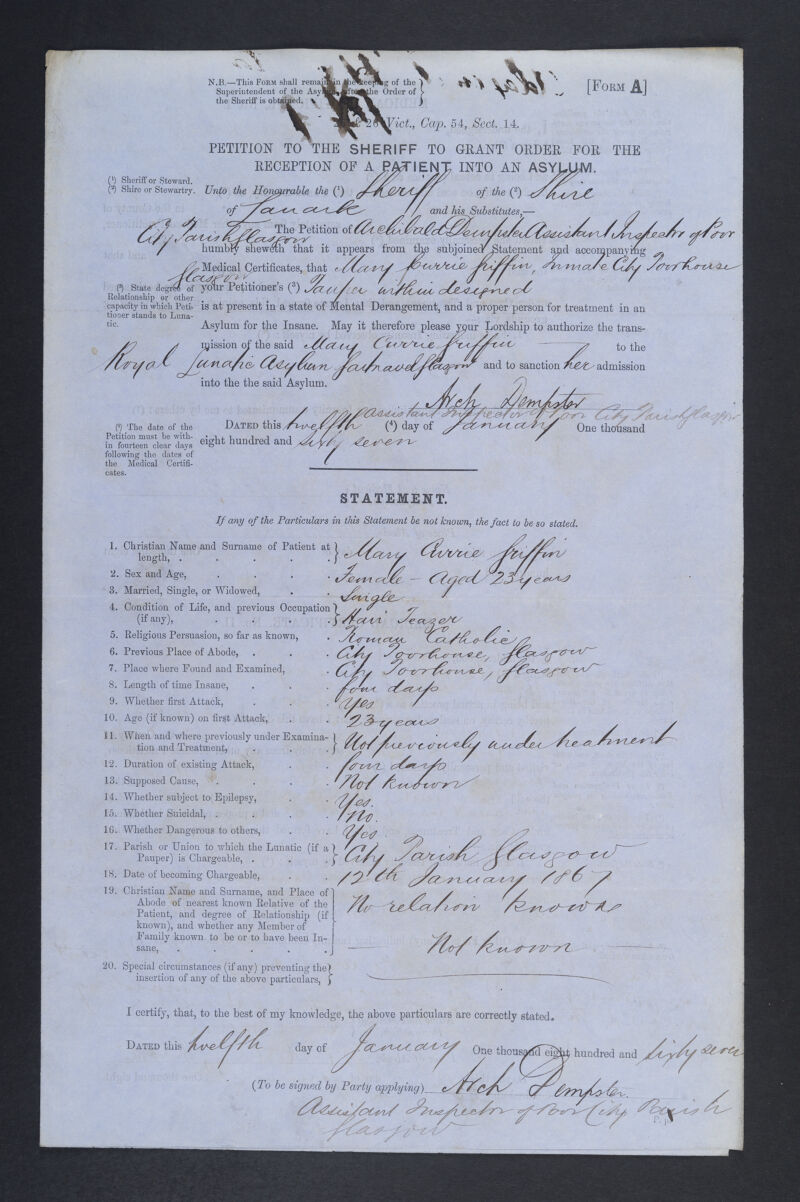 N.B.—This Form shall remain in the keeping of the
Superintendent of the Asylum after the Order of
the Sheriff is obtained.
[Form A]
Vict., Cap. 54, Sect. 14.
PETITION TO THE SHERIFF TO GRANT ORDER FOR THE
RECEPTION OF A PATIENT INTO AN ASYLUM.
(¹) Sheriff or Steward.
(²) Shire or Stewartry.
Unto the Honourable the (¹) Sheriff of the (²) Shire
of Lanark and his Substitutes,—
The Petition of Archibald Dempster Assistant Inspector of Poor
City Parish Glasgow
humbly sheweth that it appears from the subjoined Statement and accompanying
Medical Certificates, that Mary Currie Griffin, Inmate City Poorhouse
Glasgow
(³) State degree of
Relationship or other
capacity in which Peti-
tioner stands to Luna-
tic.
your Petitioner's (³) Pauper within designed
is at present in a state of Mental Derangement, and a proper person for treatment in an
Asylum for the Insane. May it therefore please your Lordship to authorize the trans-
mission of the said Mary Currie Griffin to the
Royal Lunatic Asylum Gartnavel Glasgow and to sanction her admission
into the the said Asylum.
Arch Dempster
Assistant Inspector of Poor City Parish Glasgow
(⁴) The date of the
Petition must be with-
in fourteen clear days
following the dates of
the Medical Certifi-
cates.
Dated this twelfth (⁴) day of January One thousand
eight hundred and sixty seven
STATEMENT.
If any of the Particulars in this Statement be not known, the fact to be so stated.
1. Christian Name and Surname of Patient at
length, . . . . . Mary Currie Griffin
2. Sex and Age, . . . . Female - Aged 23 years
3. Married, Single, or Widowed, . . Single
4. Condition of Life, and previous Occupation
(if any), . . . . Hair Teazer
5. Religious Persuasion, so far as known, . Roman Catholic
6. Previous Place of Abode, . . . City Poorhouse, Glasgow
7. Place where Found and Examined, . City Poorhouse, Glasgow
8. Length of time Insane, . . . four days
9. Whether first Attack, . . . Yes
10. Age (if known) on first Attack, . . 23 years
11. When and where previously under Examina-
tion and Treatment, . . . Not previously under treatment
12. Duration of existing Attack, . . four days
13. Supposed Cause, . . . . Not known
14. Whether subject to Epilepsy, . . Yes.
15. Whether Suicidal, . . . . No.
16. Whether Dangerous to others, . . Yes
17. Parish or Union to which the Lunatic (if a
Pauper) is Chargeable, . . . City Parish Glasgow
18. Date of becoming Chargeable, . . 12th January 1867
19. Christian Name and Surname, and Place of
Abode of nearest known Relative of the
Patient, and degree of Relationship (if
known), and whether any Member of
Family known to be or to have been In-
sane, . . . . . .
No relation known
Not known
20. Special circumstances (if any) preventing the
insertion of any of the above particulars,
I certify, that, to the best of my knowledge, the above particulars are correctly stated.
Dated this twelfth day of January One thousand eight hundred and sixty seven
(To be signed by Party applying) Arch Dempster.
Assistant Inspector of Poor City Parish
Glasgow